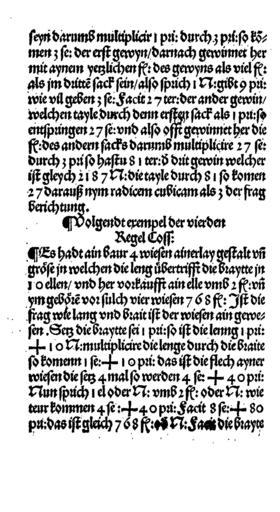 seyn darumb multiplicir 1 pri: durch 3 pri: so kö-
men 3 se: der erst gewyn/ darnach gewinnet her
mit aynem yetzlichen fl: des gewyns als viel fl:
als jm dritten sack sein/ also sprich 1 N: gibt 9 pri:
wie vil geben 3 se: Facit 27 ter: der ander gewin/
welchen tayle durch denn ersten sack als 1 pri: so
entspringen 27 se: vnd also offt gewinnet her die
fl: des andern sacks darumb multiplicire 27 se:
durch 3 pri so hastu 81 ter: d drit gewin welcher
ist gleych 2187 N: die tayle durch 81 so komen
27 darauß nym radicem cubicam als 3 der frag
berichtung.
¶ Volgendt exempel der vierden
Regel Coss:
¶ Es hadt ain baur 4 wiesen ainerlay gestalt vñ
größe jn welchen die leng übertrifft die braytte jn
10 ellen/ vnd her vorkaufft ain elle vmb 2 fl: vñ
ym gebörē vor sulch vier wiesen 768 fl: Ist die
frag wie lang vnd brait ist der wiesen ain gewe-
sen. Setz die braytte sei 1 pri: so ist die lenng 1 pri:
+ 10 N: multiplicire die lenge durch die braite
so komenn 1 se: + 10 pri: das ist die flech ayner
wiesen die setz 4 mal so werden 4 se: + 40 pri:
Nun sprich 1 el oder N: vmb 2 fl: oder N: wie
teur kommen 4 se: + 40 pri: Facit 8 se: + 80
pri: das ist gleich 768 fl: N: Facit die brayte